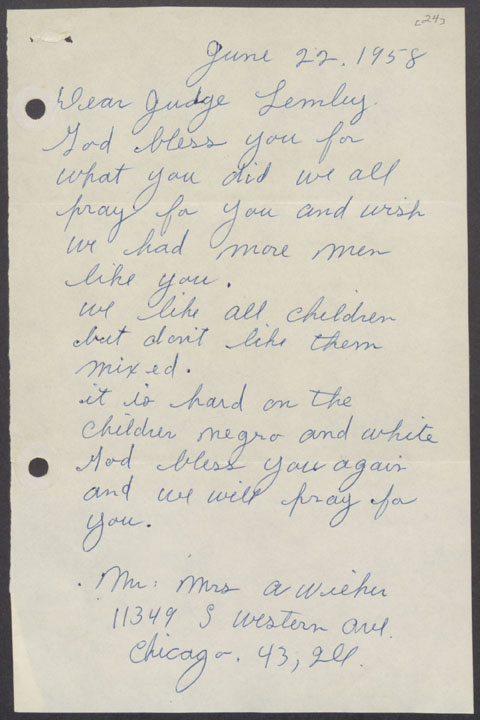 [24]
June 22, 1958
Dear Judge Lemley.
God bless you for
what you did we all
pray for you and wish
we had more men
like you.
we like all children
but don't like them
mixed.
it is hard on the
children negro and white
God bless you again
and we will pray for
you.
Mr: Mrs A
11349 S Western Ave.
Chicago. 43, Ill.